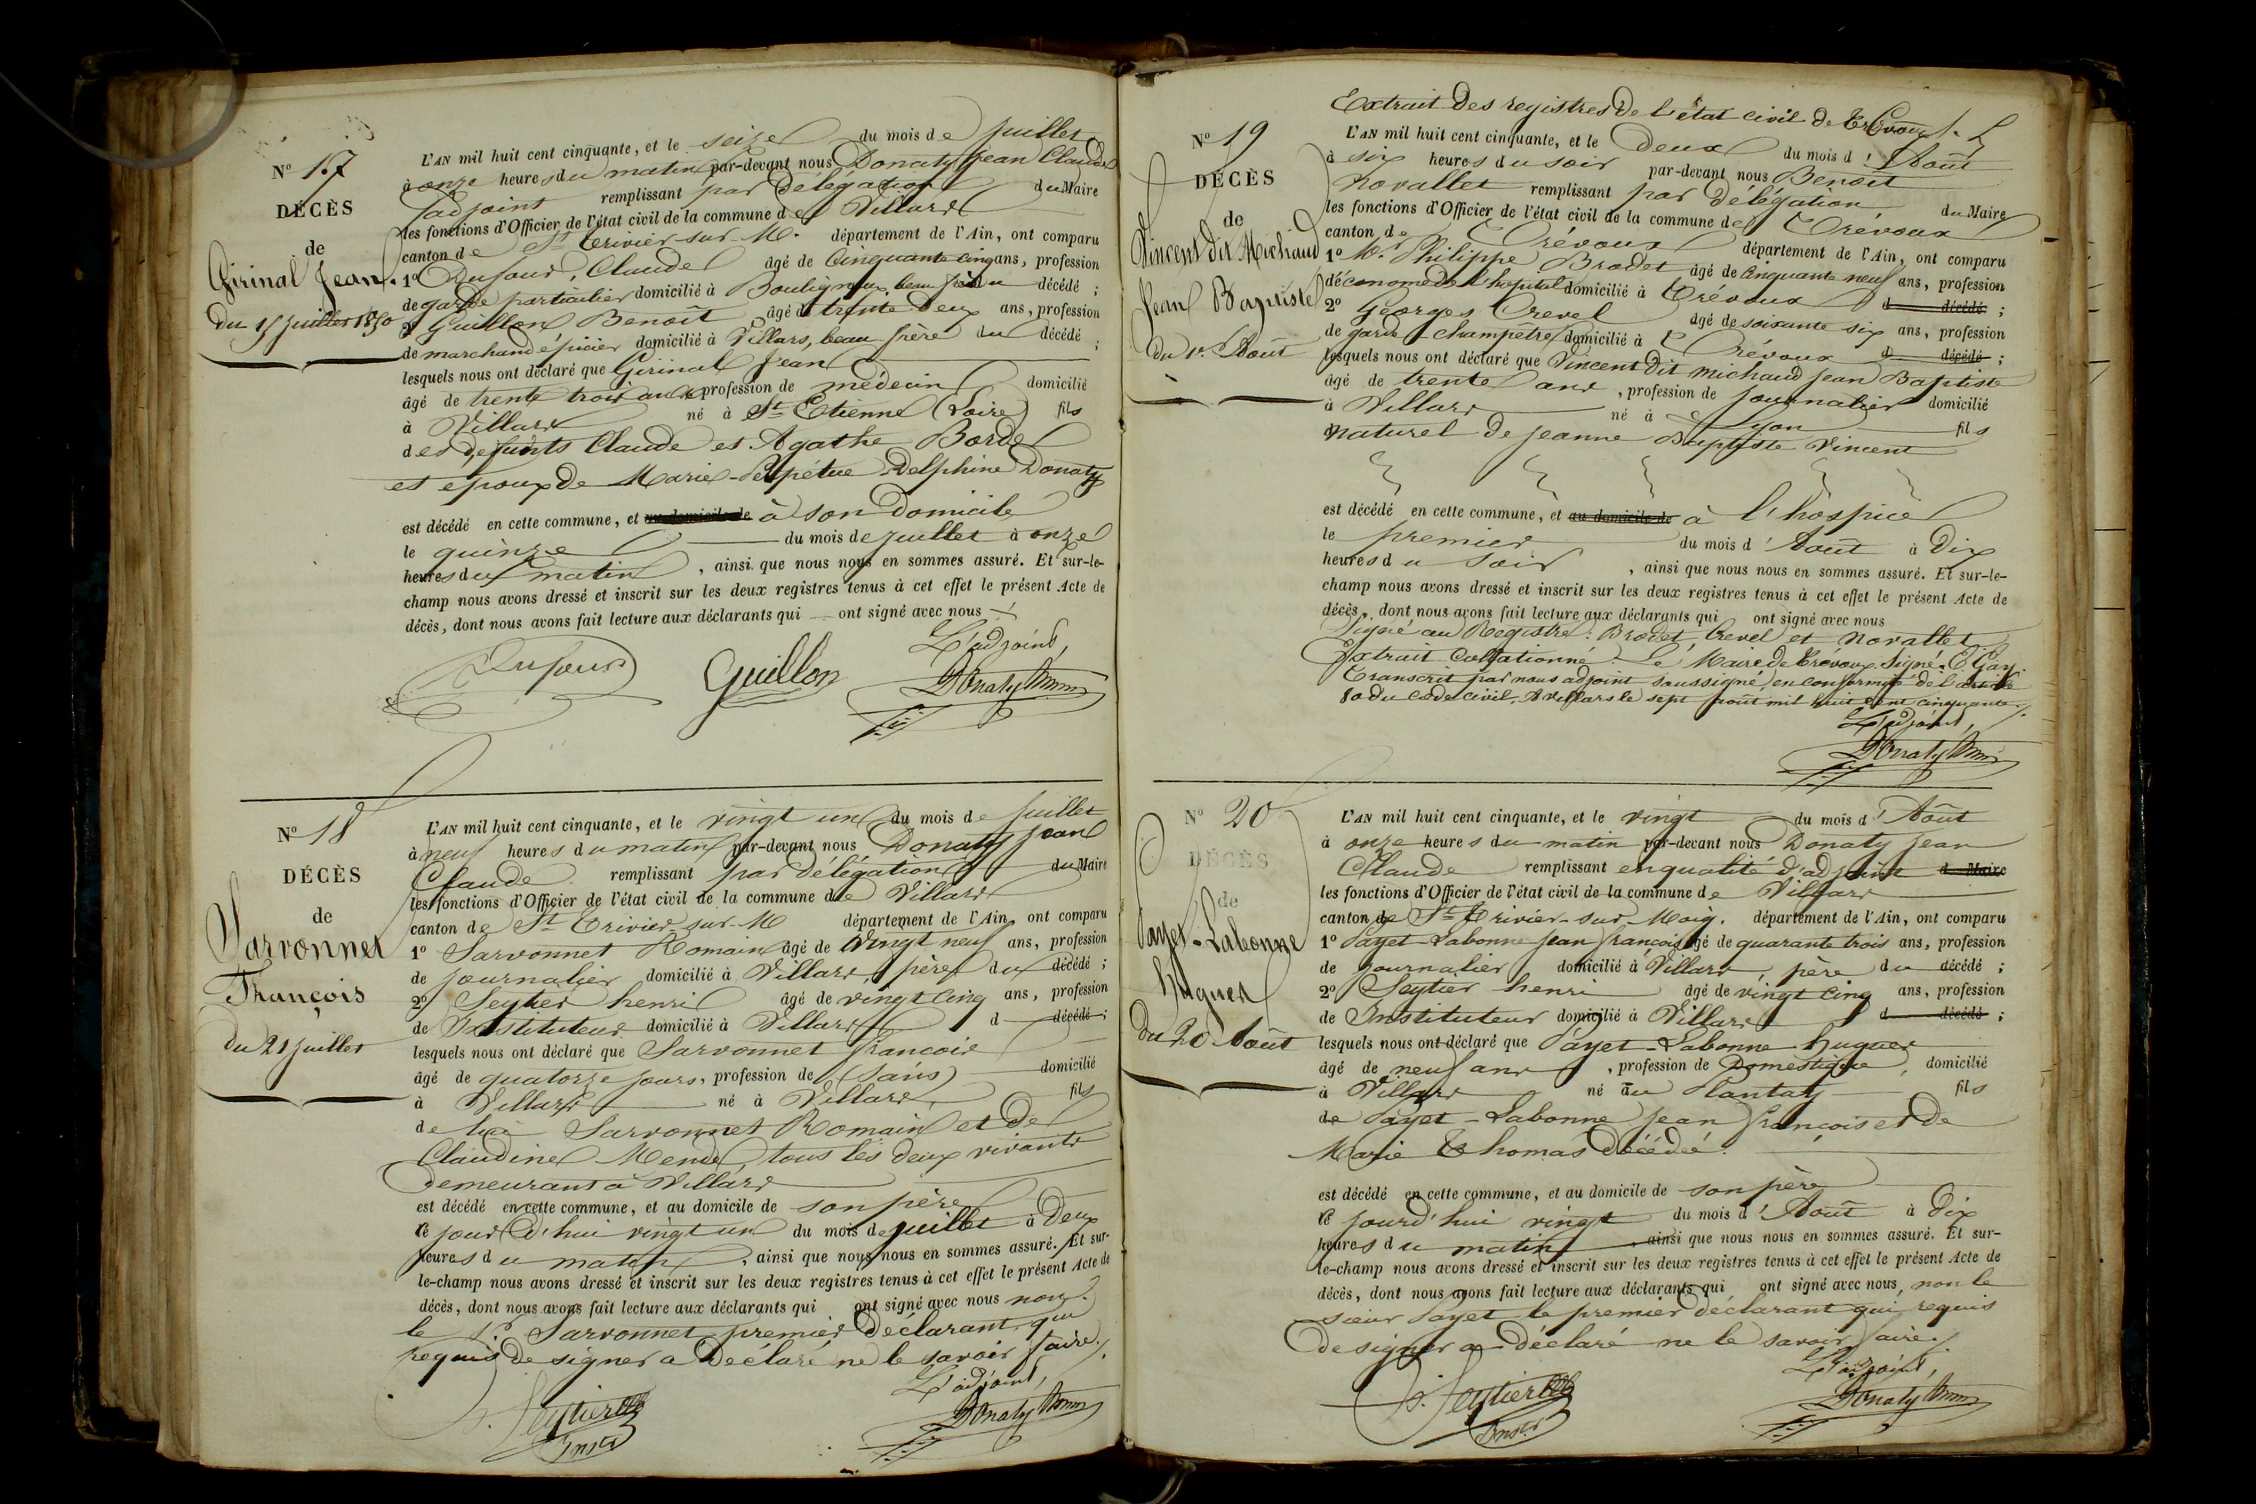 N° 17
DÉCÈS
de
Girinal Jean.
du 15 juillet 1850
L'AN mil huit cent cinquante, et le seize du mois de juillet
à onze heures du matin par-devant nous Donaty Jean Claude
adjoint remplissant par délégation du Maire
les fonctions d'Officier de l'état civil de la commune de Villars
canton de St Trivier-sur-M. département de l'Ain, ont comparu
1° Dufour, Claude âgé de Cinquante cinq ans, profession
de garde particulier domicilié à Bouligneux, beau frère du décédé ;
2° Guillon Benoit âgé de trente deux ans, profession
de marchand épicier domicilié à Villars, beau frère du décédé ;
lesquels nous ont déclaré que Girinal Jean
âgé de trente trois ans profession de médecin domicilié
à Villars né à St Etienne (Loire) fils
des defunts Claude et Agathe Borde
et epoux de Marie-Perpétue Delphine Donaty
est décédé en cette commune, et au domicile de à son domicile
le quinze du mois de juillet à onze
heures du matin, ainsi que nous nous en sommes assuré. Et sur-le-
champ nous avons dressé et inscrit sur les deux registres tenus à cet effet le présent Acte de
décès, dont nous avons fait lecture aux déclarants qui ont signé avec nous
L'adjoint,
Dufour Guillon Donaty
N° 18
DÉCÈS
de
Sarvonnet
François
du 21 juillet
L'AN mil huit cent cinquante, et le vingt un du mois de juillet
à neuf heures du matin par-devant nous Donaty Jean
Claude remplissant par délégation du Maire
les fonctions d'Officier de l'état civil de la commune de Villars
canton de St Trivier-sur-M département de l'Ain, ont comparu
1° Sarvonnet Romain âgé de vingt neuf ans, profession
de journalier domicilié à Villars, père du décédé ;
2° Seytier henri âgé de vingt cinq ans, profession
de Instituteur domicilié à Villars d décédé ;
lesquels nous ont déclaré que Sarvonnet françois
âgé de quatorze jours, profession de (sans) domicilié
à Villars né à Villars, fils
de lui Sarvonnet Romain et de
Claudine tous les deux vivants
demeurant à Villars
est décédé en cette commune, et au domicile de son père
ce jour d'hui vingt un du mois de juillet à deux
heures du matin, ainsi que nous nous en sommes assuré. Et sur-
le-champ nous avons dressé et inscrit sur les deux registres tenus à cet effet le présent Acte de
décès, dont nous avons fait lecture aux déclarants qui ont signé avec nous non
le Sr Sarvonnet premier déclarant qui
requis de signer a déclaré ne le savoir faire.
L'adjoint,
h. Seytier Donaty
Instr
Extrait des registres de l'état civil de Trévoux
N° 19
DÉCÈS
de
Vincent dit Michaud
Jean Baptiste
du 1er Août
L'AN mil huit cent cinquante, et le deux du mois d'Août
à six heures du soir par-devant nous Benoit
Novallet remplissant par délégation du Maire
les fonctions d'Officier de l'état civil de la commune de Trévoux
canton de Trévoux département de l'Ain, ont comparu
1° Mr Philippe Brodet âgé de Cinquante neuf ans, profession
d'économe de l'hopital domicilié à Trévoux d décédé ;
2° Georges Crevel âgé de soixante six ans, profession
de garde champêtre domicilié à Trévoux d décédé ;
lesquels nous ont déclaré que Vincent dit Michaud Jean Baptiste
âgé de trente ans, profession de journalier domicilié
à Villars né à Lyon fils
naturel de Jeanne Baptiste Vincent
est décédé en cette commune, et au domicile de à l'hospice
le premier du mois d'Août à dix
heures du soir, ainsi que nous nous en sommes assuré. Et sur-le-
champ nous avons dressé et inscrit sur les deux registres tenus à cet effet le présent Acte de
décès, dont nous avons fait lecture aux déclarants qui ont signé avec nous
Signé au Registre: Brodet Crevel et Novallet
Extrait Collationné. Le Maire de Trévoux Signé. C. Gay.
Transcrit par nous adjoint soussigné, en conformité de l'article
80 du code civil. A Villars le sept août mil huit cent cinquante.
L'adjoint,
Donaty
N° 20
DÉCÈS
de
Payet-Labonne
hugues
du 20 Août
L'AN mil huit cent cinquante, et le vingt du mois d'Août
à onze heures du matin par-devant nous Donaty jean
Claude remplissant en qualité d'adjoint d Maire
les fonctions d'Officier de l'état civil de la commune de Villars
canton de St Trivier-sur-Moig. département de l'Ain, ont comparu
1° Payet-Labonne jean françois âgé de quarante trois ans, profession
de journalier domicilié à Villars, père du décédé ;
2° Seytier henri âgé de vingt cinq ans, profession
de Instituteur domicilié à Villars d décédé ;
lesquels nous ont déclaré que Payet-Labonne hugues
âgé de neuf ans, profession de Domestique, domicilié
à Villars né au Plantay fils
de Payet-Labonne jean françois et de
Marie Thomas décédée.
est décédé en cette commune, et au domicile de son père
ce jourd'hui vingt du mois d'Août à dix
heures du matin, ainsi que nous nous en sommes assuré. Et sur-
le-champ nous avons dressé et inscrit sur les deux registres tenus à cet effet le présent Acte de
décès, dont nous avons fait lecture aux déclarants qui ont signé avec nous, non le
sieur Payet le premier déclarant qui requis
de signer a déclaré ne le savoir faire.
L'adjoint,
h. Seytier Donaty
Instr